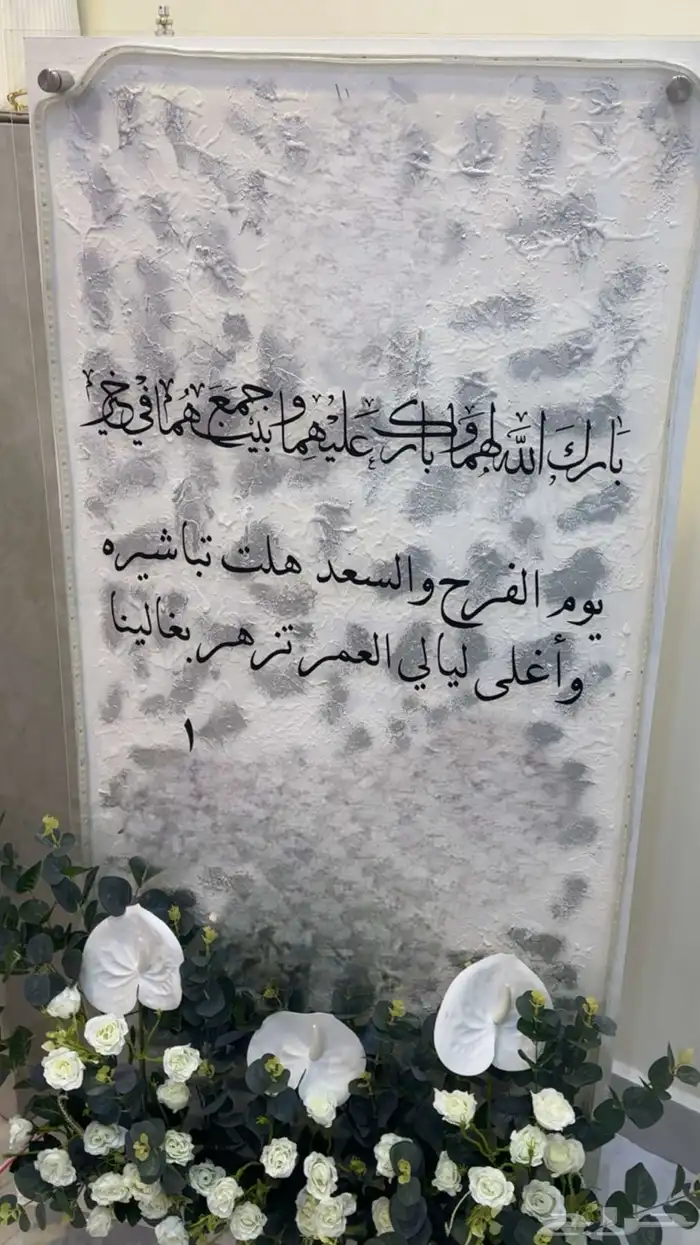 بارك الله لهما وبارك عليهما وجمع بينهما في خير
يوم الفرح والسعد هلت تباشيره
وأغلى ليالي العمر تزهر بغالينا
١
حراج